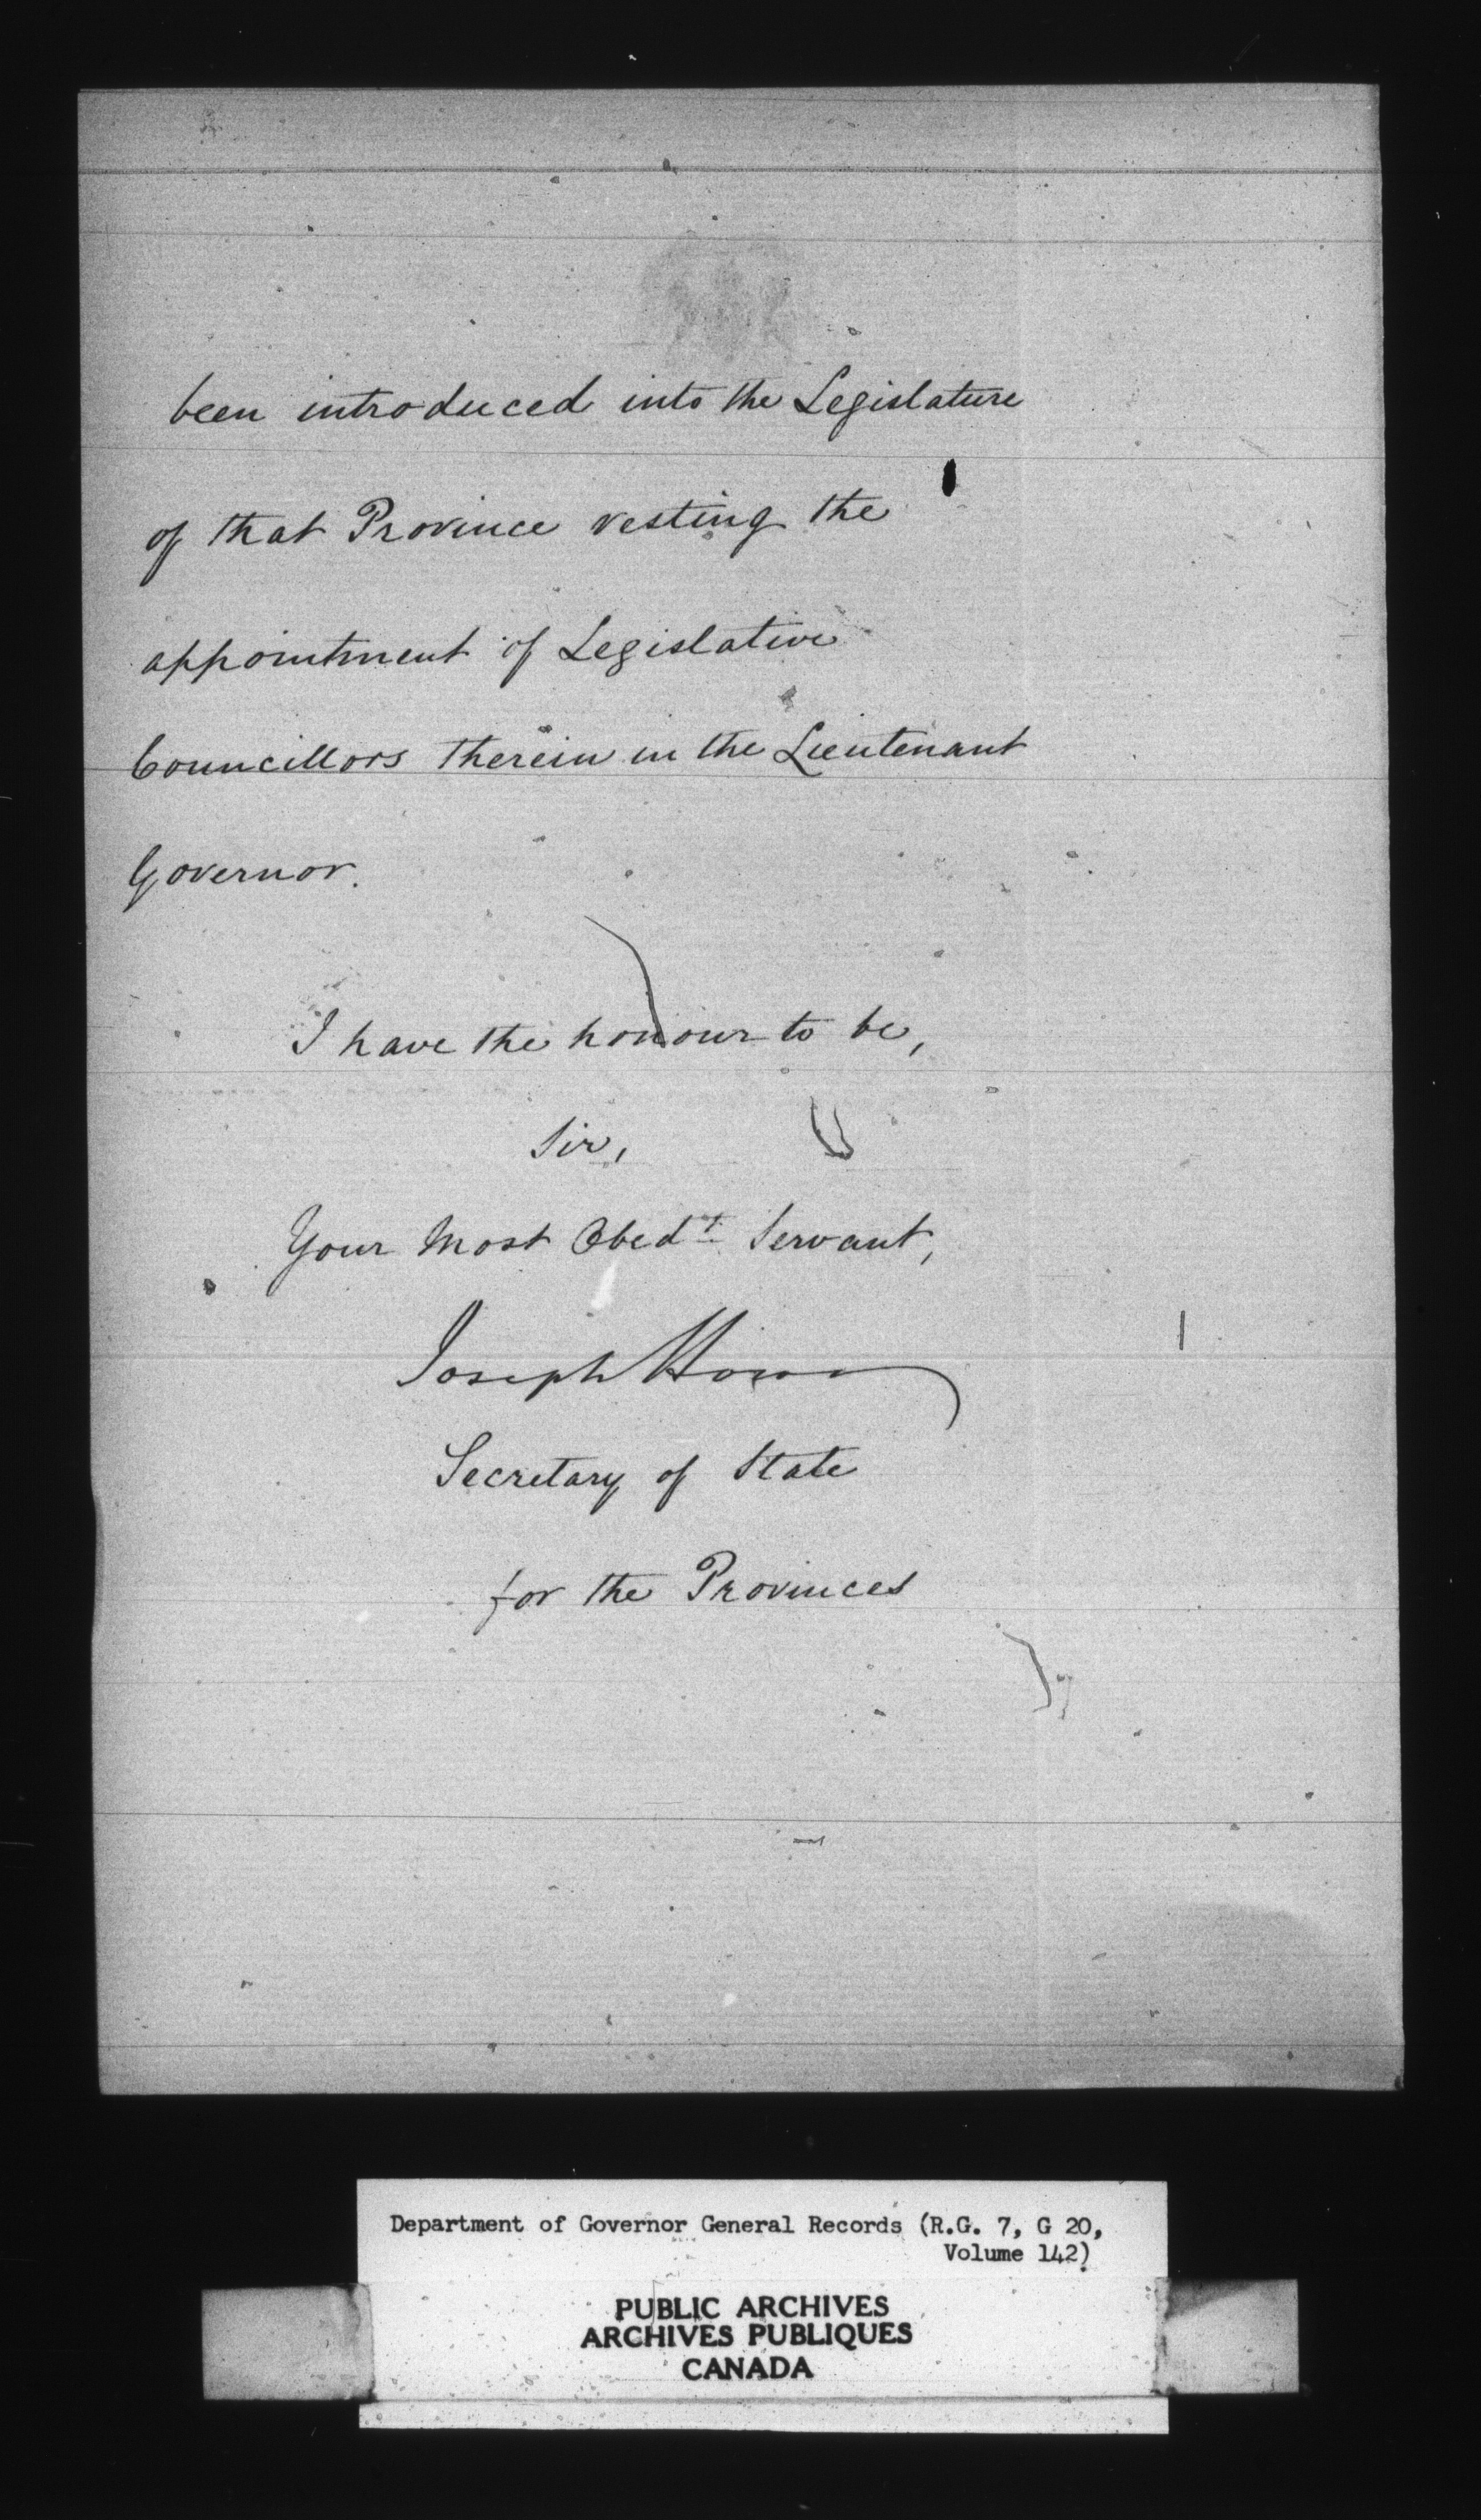 been introduced into the Legislature
of that Province vesting the
appointment of Legislative
Councillors therein in the Lieutenant
Governor.
I have the honour to be,
Sir,
Your Most Obedt Servant,
Joseph Howe
Secretary of State
for the Provinces
Department of Governor General Records (R.G. 7, G 20,
Volume 142)
PUBLIC ARCHIVES
ARCHIVES PUBLIQUES
CANADA